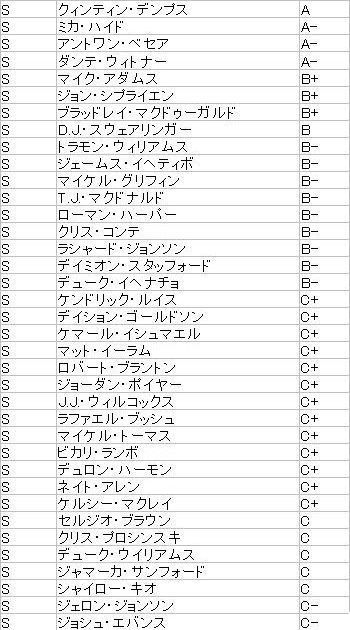 S クィンティン・デンプス A
S ミカ・ハイド A-
S アントワン・ベセア A-
S ダンテ・ウィトナー A-
S マイク・アダムス B+
S ジョン・シプライエン B+
S ブラッドレイ・マクドゥーガルド B+
S D.J.・スウェアリンガー B
S トラモン・ウィリアムス B-
S ジェームス・イヘティボ B-
S マイケル・グリフィン B-
S T.J.・マクドナルド B-
S ローマン・ハーパー B-
S クリス・コンテ B-
S ラシャード・ジョンソン B-
S デイミオン・スタッフォード B-
S デューク・イヘナチョ B-
S ケンドリック・ルイス C+
S デイション・ゴールドソン C+
S ケマール・イシュマエル C+
S マット・イーラム C+
S ロバート・ブラントン C+
S ジョーダン・ポイヤー C+
S J.J.・ウィルコックス C+
S ラファエル・ブッシュ C+
S マイケル・トーマス C+
S ビカリ・ランボ C+
S デュロン・ハーモン C+
S ネイト・アレン C+
S ケルシー・マクレイ C+
S セルジオ・ブラウン C
S クリス・プロシンスキ C
S デューク・ウイリアムス C
S ジャマーカ・サンフォード C
S シャイロー・キオ C
S ジェロン・ジョンソン C-
S ジョシュ・エバンス C-